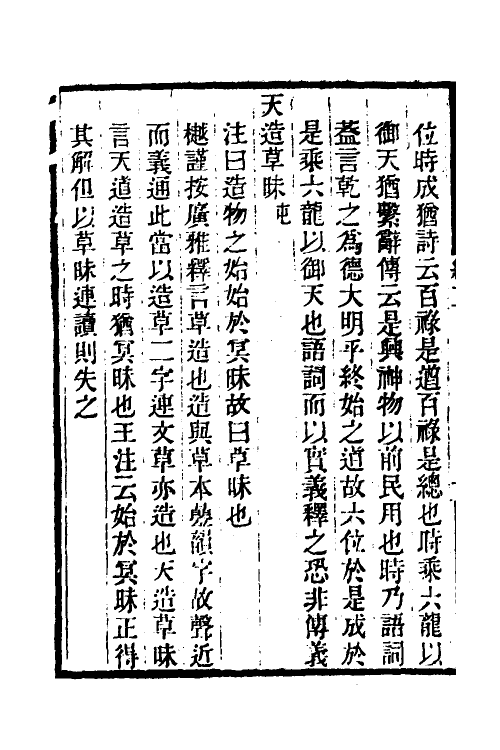 位時成猶詩云百祿是遒百祿是總也時乘六龍以
御天猶繫辭傳云是興神物以前民用也時乃語詞
葢言乾之爲德大明乎終始之道故六位於是成於
是乘六龍以御天也語詞而以實義釋之恐非傳義
天造草昧屯
注曰造物之始始於冥昧故曰草昧也
樾謹按廣雅釋言草造也造與草本㬪韻字故聲近
而義通此當以造草二字連文草亦造也天造草昧
言天道造草之時猶冥昧也王注云始於冥昧正得
其解但以草昧連讀則失之